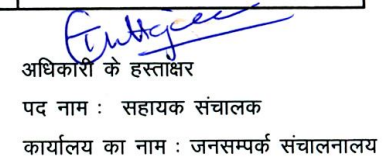 अधिकारी के हस्ताक्षर
पद नाम : सहायक संचालक
कार्यालय का नाम : जनसम्पर्क संचालनालय